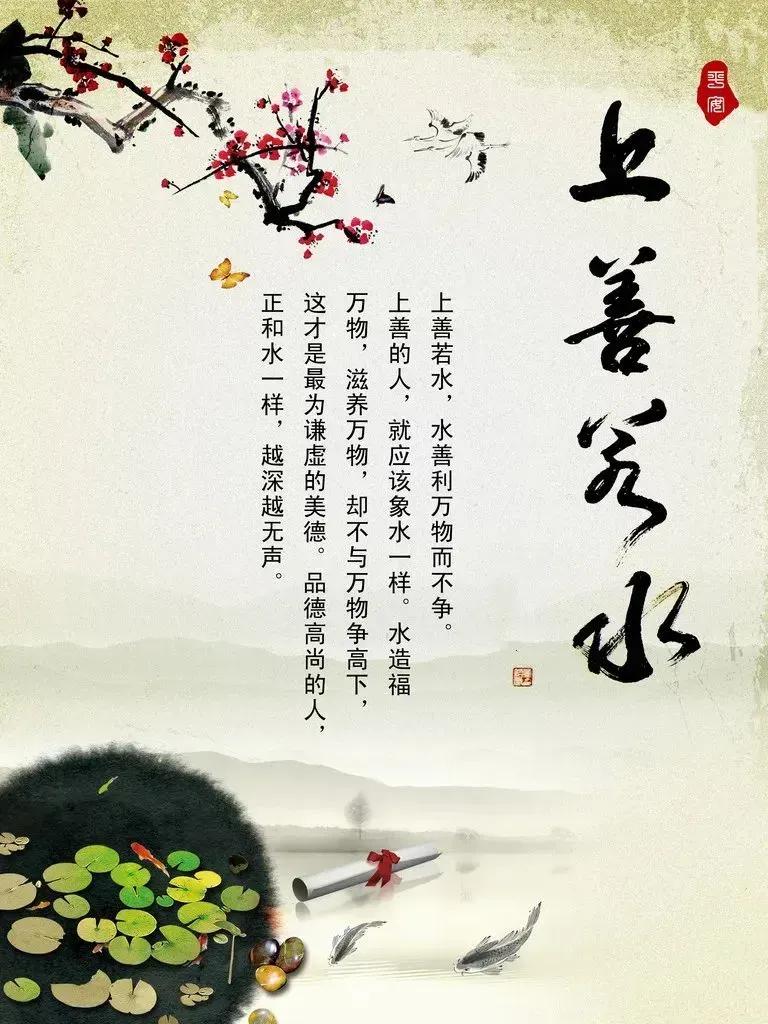 平安
上善若水
上善若水，水善利万物而不争。
上善的人，就应该象水一样。水造福
万物，滋养万物，却不与万物争高下，
这才是最为谦虚的美德。品德高尚的人，
正和水一样，越深越无声。